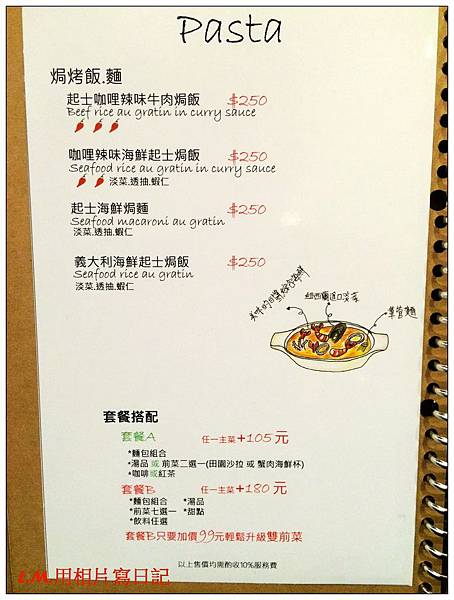 Pasta
焗烤飯.麵
起士咖哩辣味牛肉焗飯 $250
Beef rice au gratin in curry sauce
咖哩辣味海鮮起士焗飯 $250
Seafood rice au gratin in curry sauce
淡菜.透抽.蝦仁
起士海鮮焗麵 $250
Seafood macaroni au gratin
淡菜.透抽.蝦仁
義大利海鮮起士焗飯 $250
Seafood rice au gratin
淡菜.透抽.蝦仁
美味的白醬綜合海鮮
紐西蘭進口淡菜
筆管麵
套餐搭配
套餐A 任一主菜+105元
*麵包組合
*湯品 或 前菜二選一(田園沙拉 或 蟹肉海鮮杯)
*咖啡或紅茶
套餐B 任一主菜+180元
*麵包組合 *湯品
*前菜七選一 *甜點
*飲料任選
套餐B只要加價99元輕鬆升級雙前菜
以上售價均需酌收10%服務費
L.M.用相片寫日記